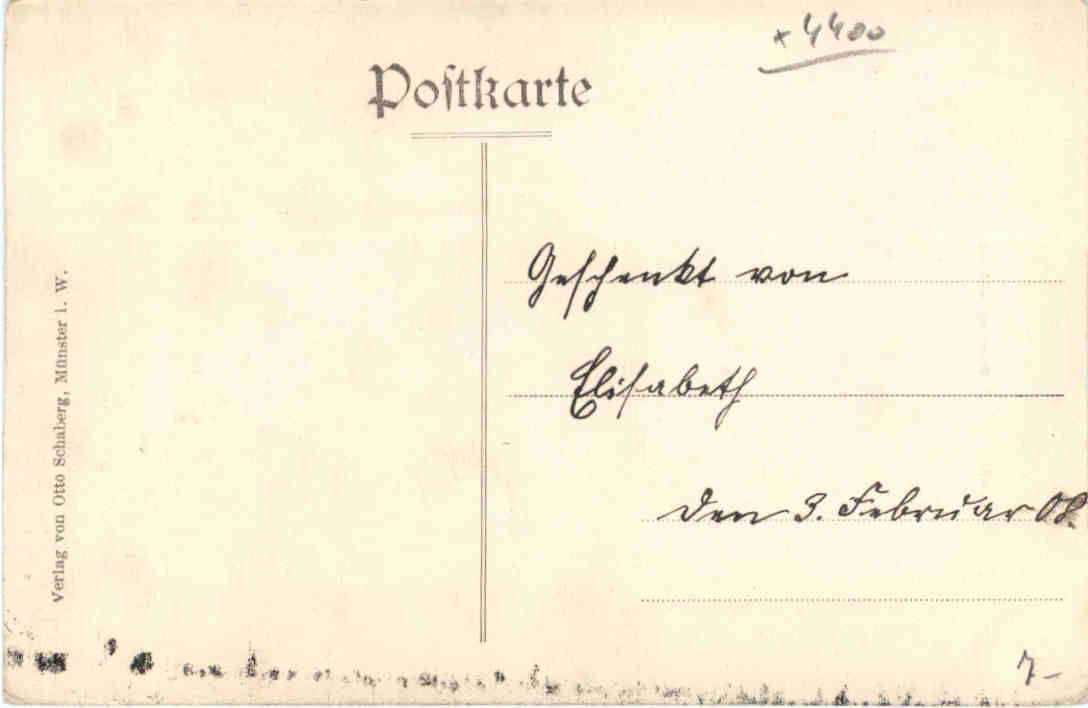 + 4400
Postkarte
Geschenkt von
Elisabeth
den 3. Februar 08.
7-
Verlag von Otto Schaberg, Münster i. W.